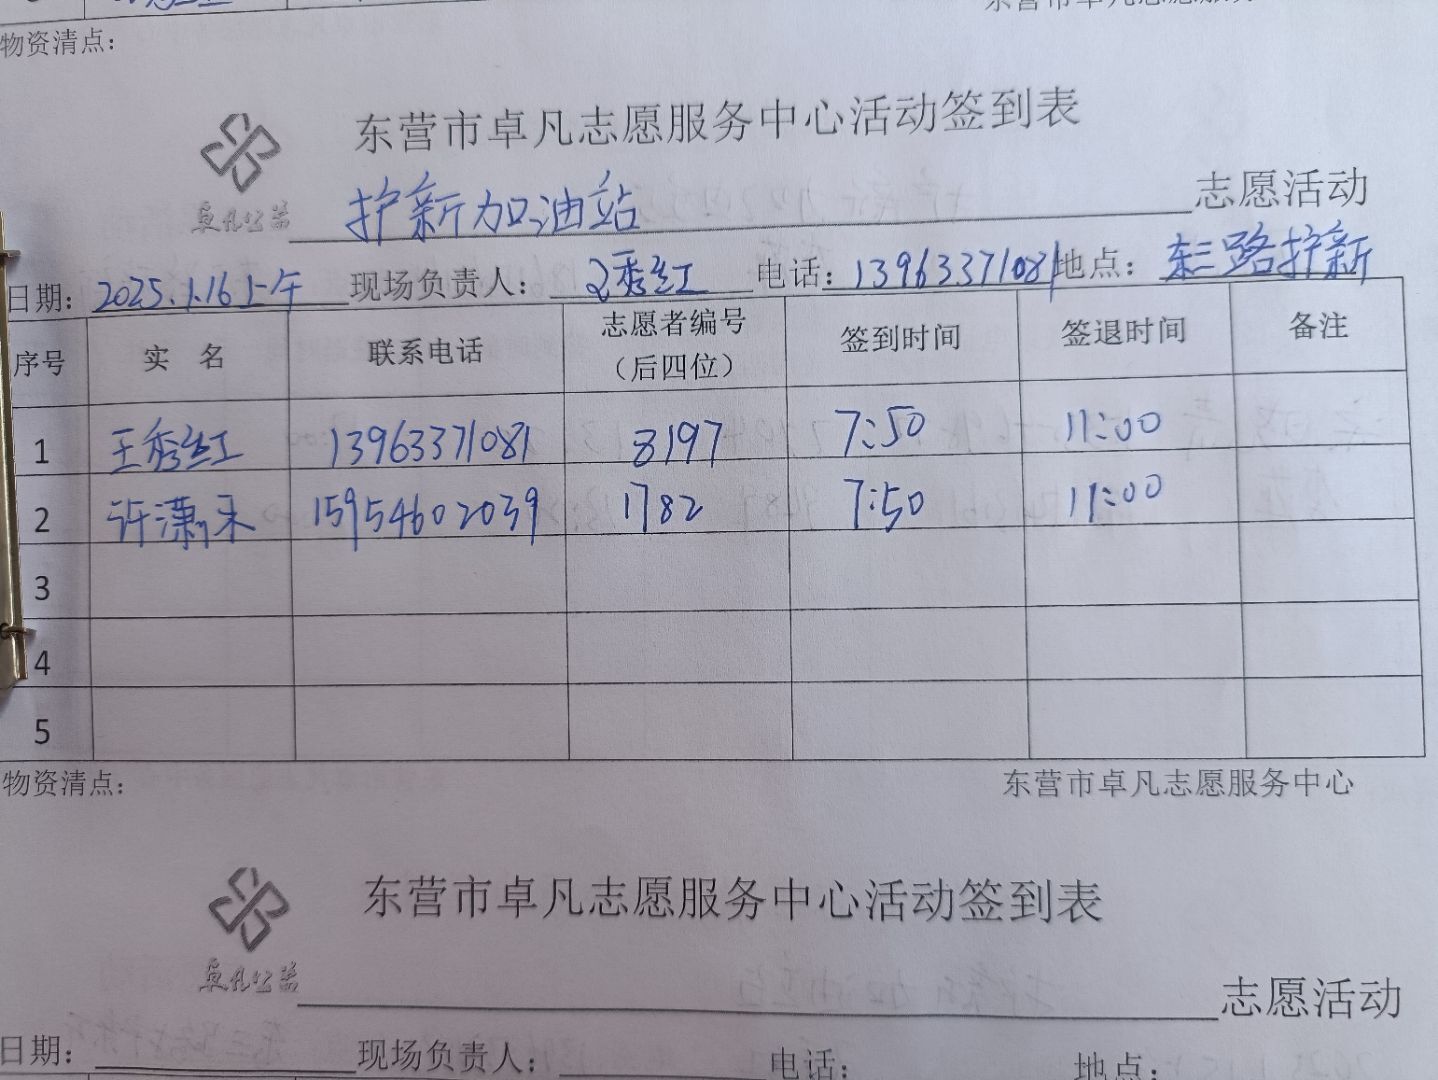 物资清点：
东营市卓凡志愿服务中心活动签到表
卓凡公益 护新加油站 志愿活动
日期：2025.1.16上午 现场负责人：王秀红 电话：13963371081 地点：东三路护新
序号 实 名 联系电话 志愿者编号（后四位） 签到时间 签退时间 备注
1 王秀红 13963371081 8197 7:50 11:00
2 许潇禾 15954602039 1782 7:50 11:00
3
4
5
物资清点： 东营市卓凡志愿服务中心
东营市卓凡志愿服务中心活动签到表
卓凡公益 志愿活动
日期： 现场负责人： 电话： 地点：